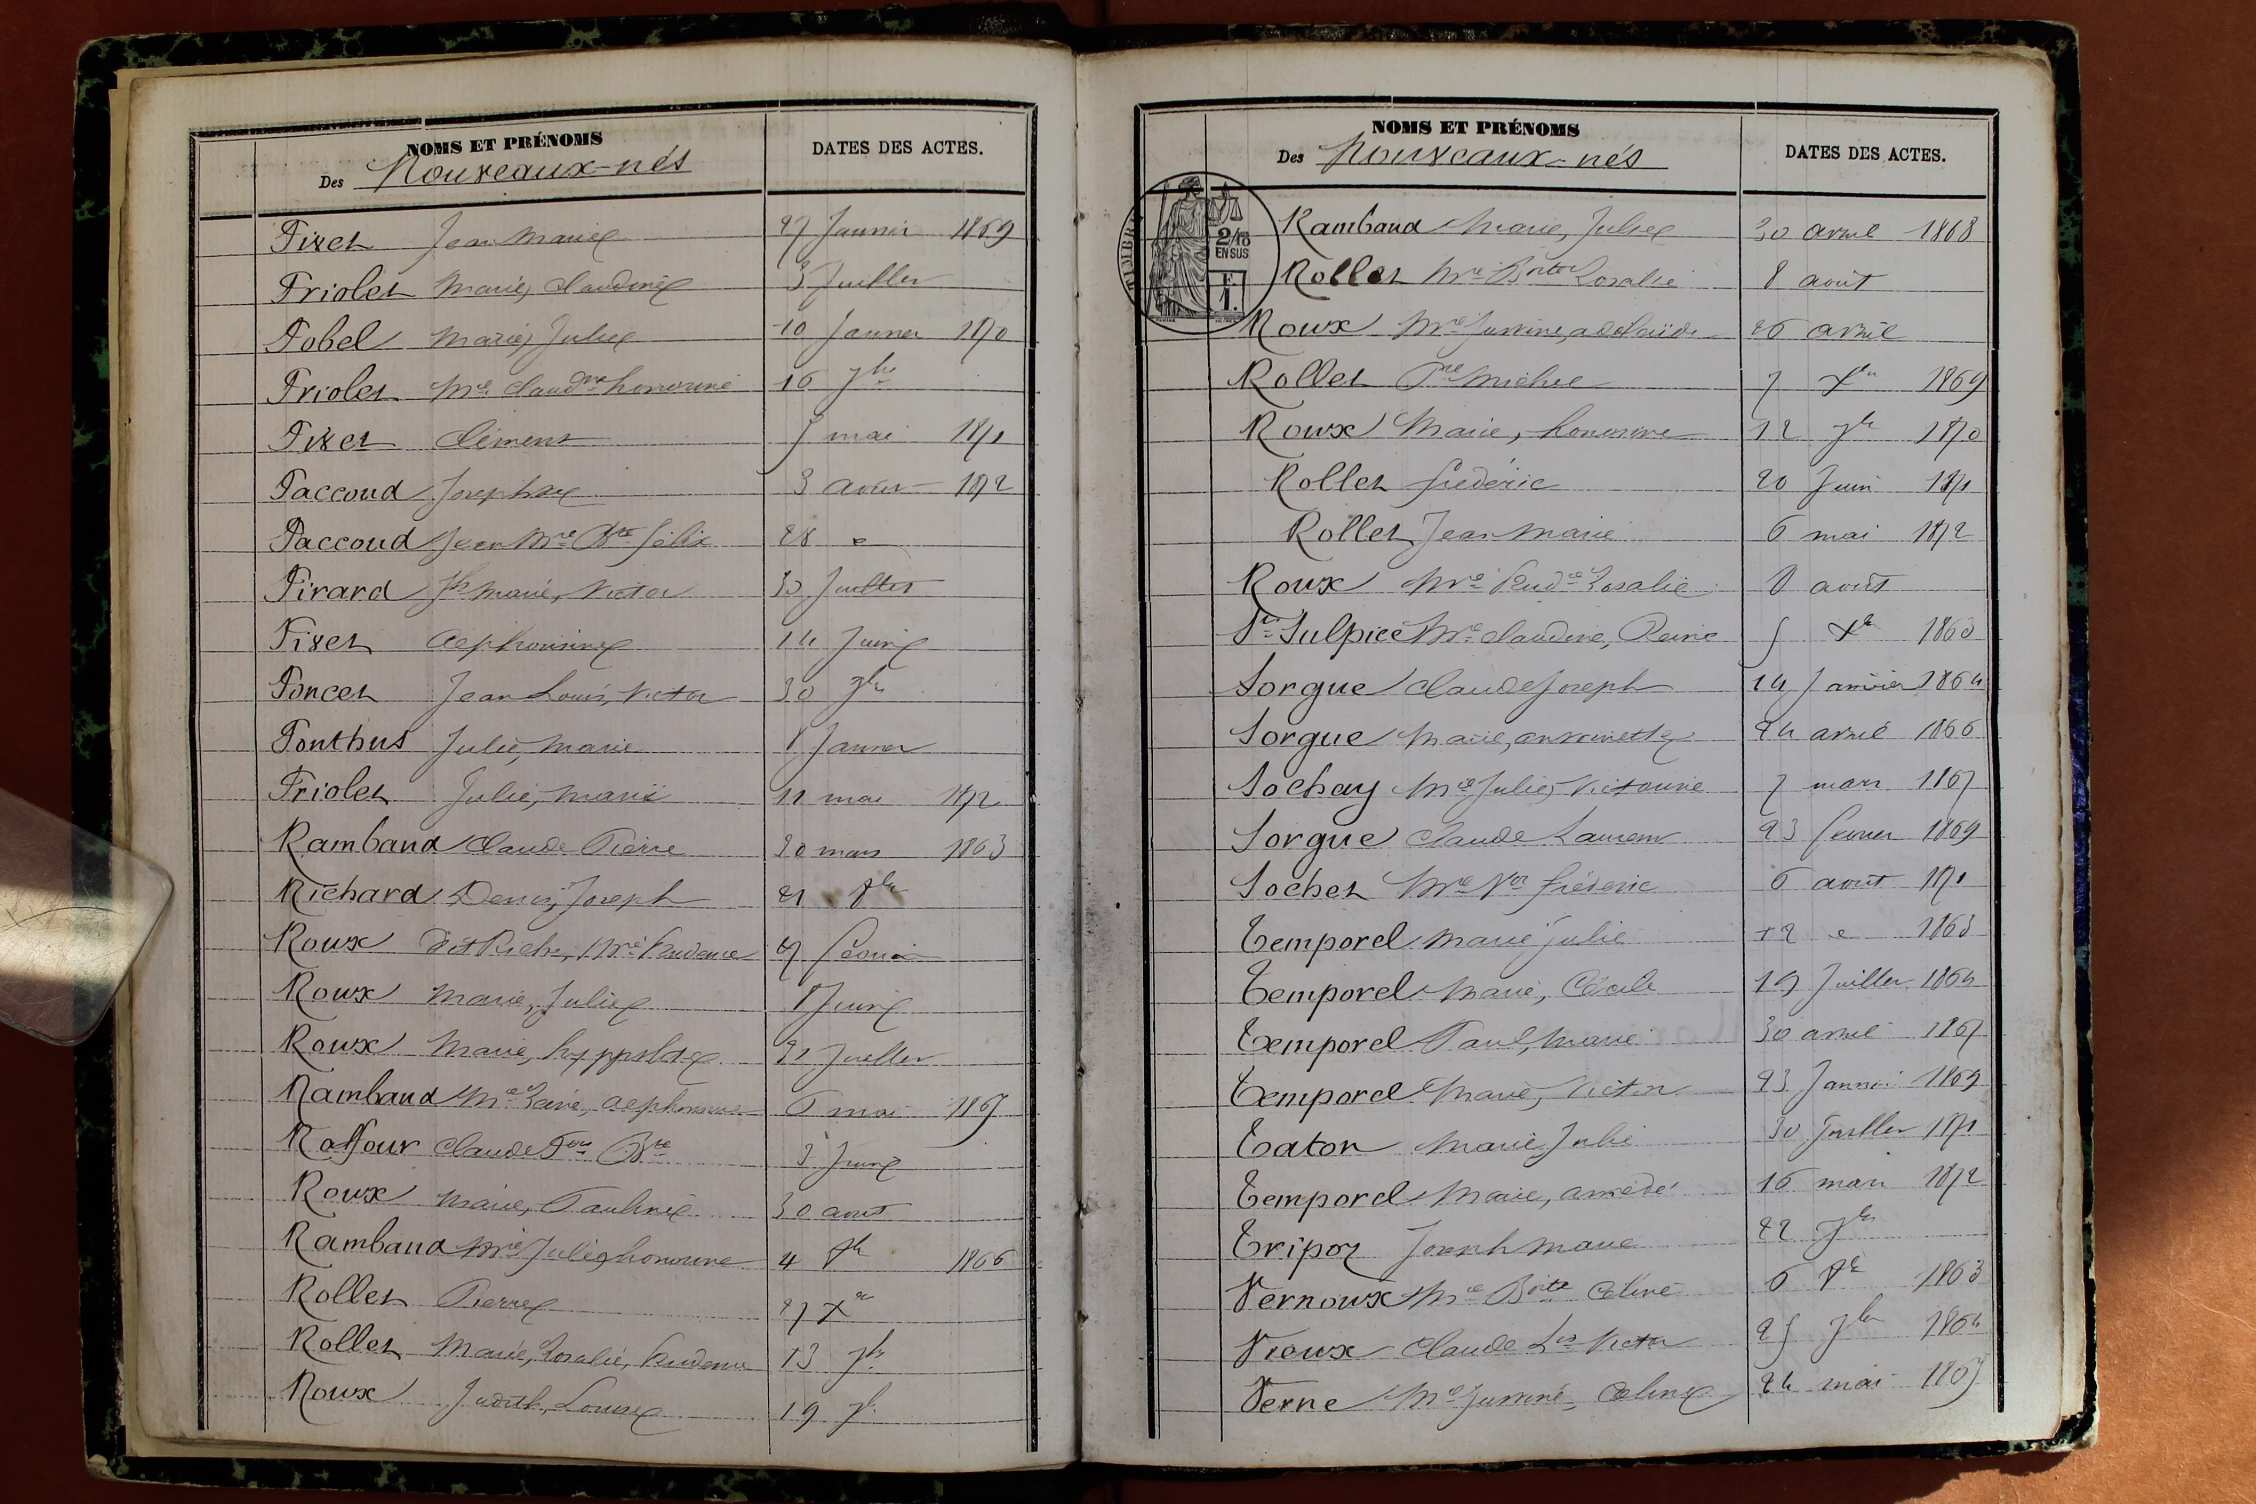 NOMS ET PRÉNOMS
Des Nouveaux-nés
DATES DES ACTES.
Pivet Jean Marie 27 Janvier 1869
Priolet Marie, Claudine 3 Juillet
Pobel Marie, Julie 10 Janvier 1870
Priolet Mie Claudine honorine 16 7bre
Pivet Clément 5 mai 1871
Paccoud Joseph 3 août 1872
Paccoud Jean Mie Bte Félix 28 e
Pirard Jh Marie, Victor 30 Juillet
Pivet Alphonsine 14 Juin
Poncet Jean Louis, Victor 30 7bre
Ponthus Julie, Marie 8 Janvier
Priolet Julie, Marie 11 mai 1872
Rambaud Claude Pierre 20 mars 1863
Richard Denis, Joseph 21 8bre
Roux dit Riche, Mie Prudence 27 Février
Roux Marie, Julie 8 Juin
Roux Marie, hyppolite 21 Juillet
Rambaud Mie Alphonsine 6 mai 1865
Claude Fois Bte 3 Juin
Roux Marie, Pauline 30 août
Rambaud Mie Julie honorine 4 8bre 1866
Rollet Pierre 27 Xbre
Rollet Marie, Rosalie, Prudence 13 7bre
Roux Judith, Louise 19 7bre
NOMS ET PRÉNOMS
Des Nouveaux-nés
DATES DES ACTES.
TIMBRE
2/10
EN SUS
Rambaud Marie, Julie 30 avril 1868
Rollet Mie Rosalie 8 août
Roux Mie Justine, adélaïde 26 avril
Rollet Pre Michel 7 Xbre 1869
Roux Marie, honorine 12 7bre 1870
Rollet frédéric 20 Juin 1871
Rollet Jean Marie 6 mai 1872
Roux Mie Prudce Rosalie 8 août
St Sulpice Mie Claudine, Reine 5 Xbre 1863
Sorgue Claude Joseph 14 Janvier 1864
Sorgue Marie, antoinette 24 avril 1866
Sochay Mie Julie, Victorine 7 mars 1867
Sorgue Claude Laurent 23 février 1869
Sochet Mie Vor frédéric 6 août 1871
Temporel Marie Julie 12 e 1863
Temporel Marie, Cécile 19 Juillet 1864
Temporel Paul, Marie 30 avril 1867
Temporel Marie, Victor 23 Janvier 1869
Taton Marie Julie 30 Juillet 1871
Temporel Marie, amédé 16 mars 1872
Tripoz Joseph Marie 22 7bre
Vernoux Mie Bnte Céline 6 8bre 1863
Vieux Claude Ls Victor 25 7bre 1864
Verne Mie Justine, Céline 24 mai 1865